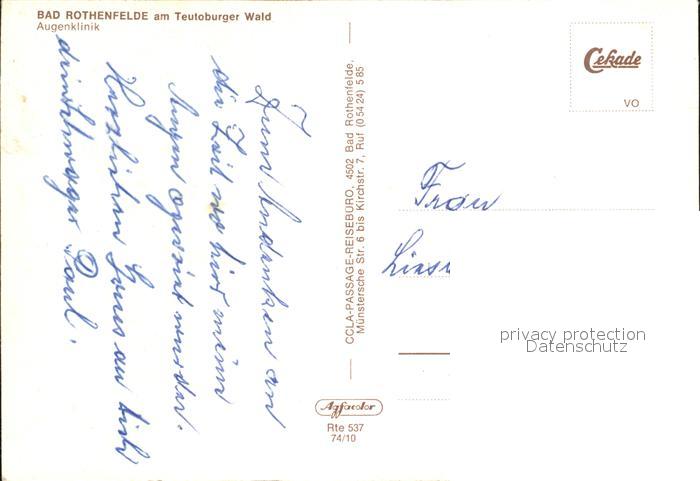 BAD ROTHENFELDE am Teutoburger Wald
Augenklinik
Zum Andenken an
die Zeit wo hier meine
Augen operiert wurden.
Herzlichen Gruss an dich
dein Schwager Paul.
CCLA-PASSAGE-REISEBÜRO, 4502 Bad Rothenfelde,
Münstersche Str. 6 bis Kirchstr. 7, Ruf (0 54 24) 5 85
Cekade
VO
Frau
privacy protection
Datenschutz
Agfacolor
Rte 537
74/10